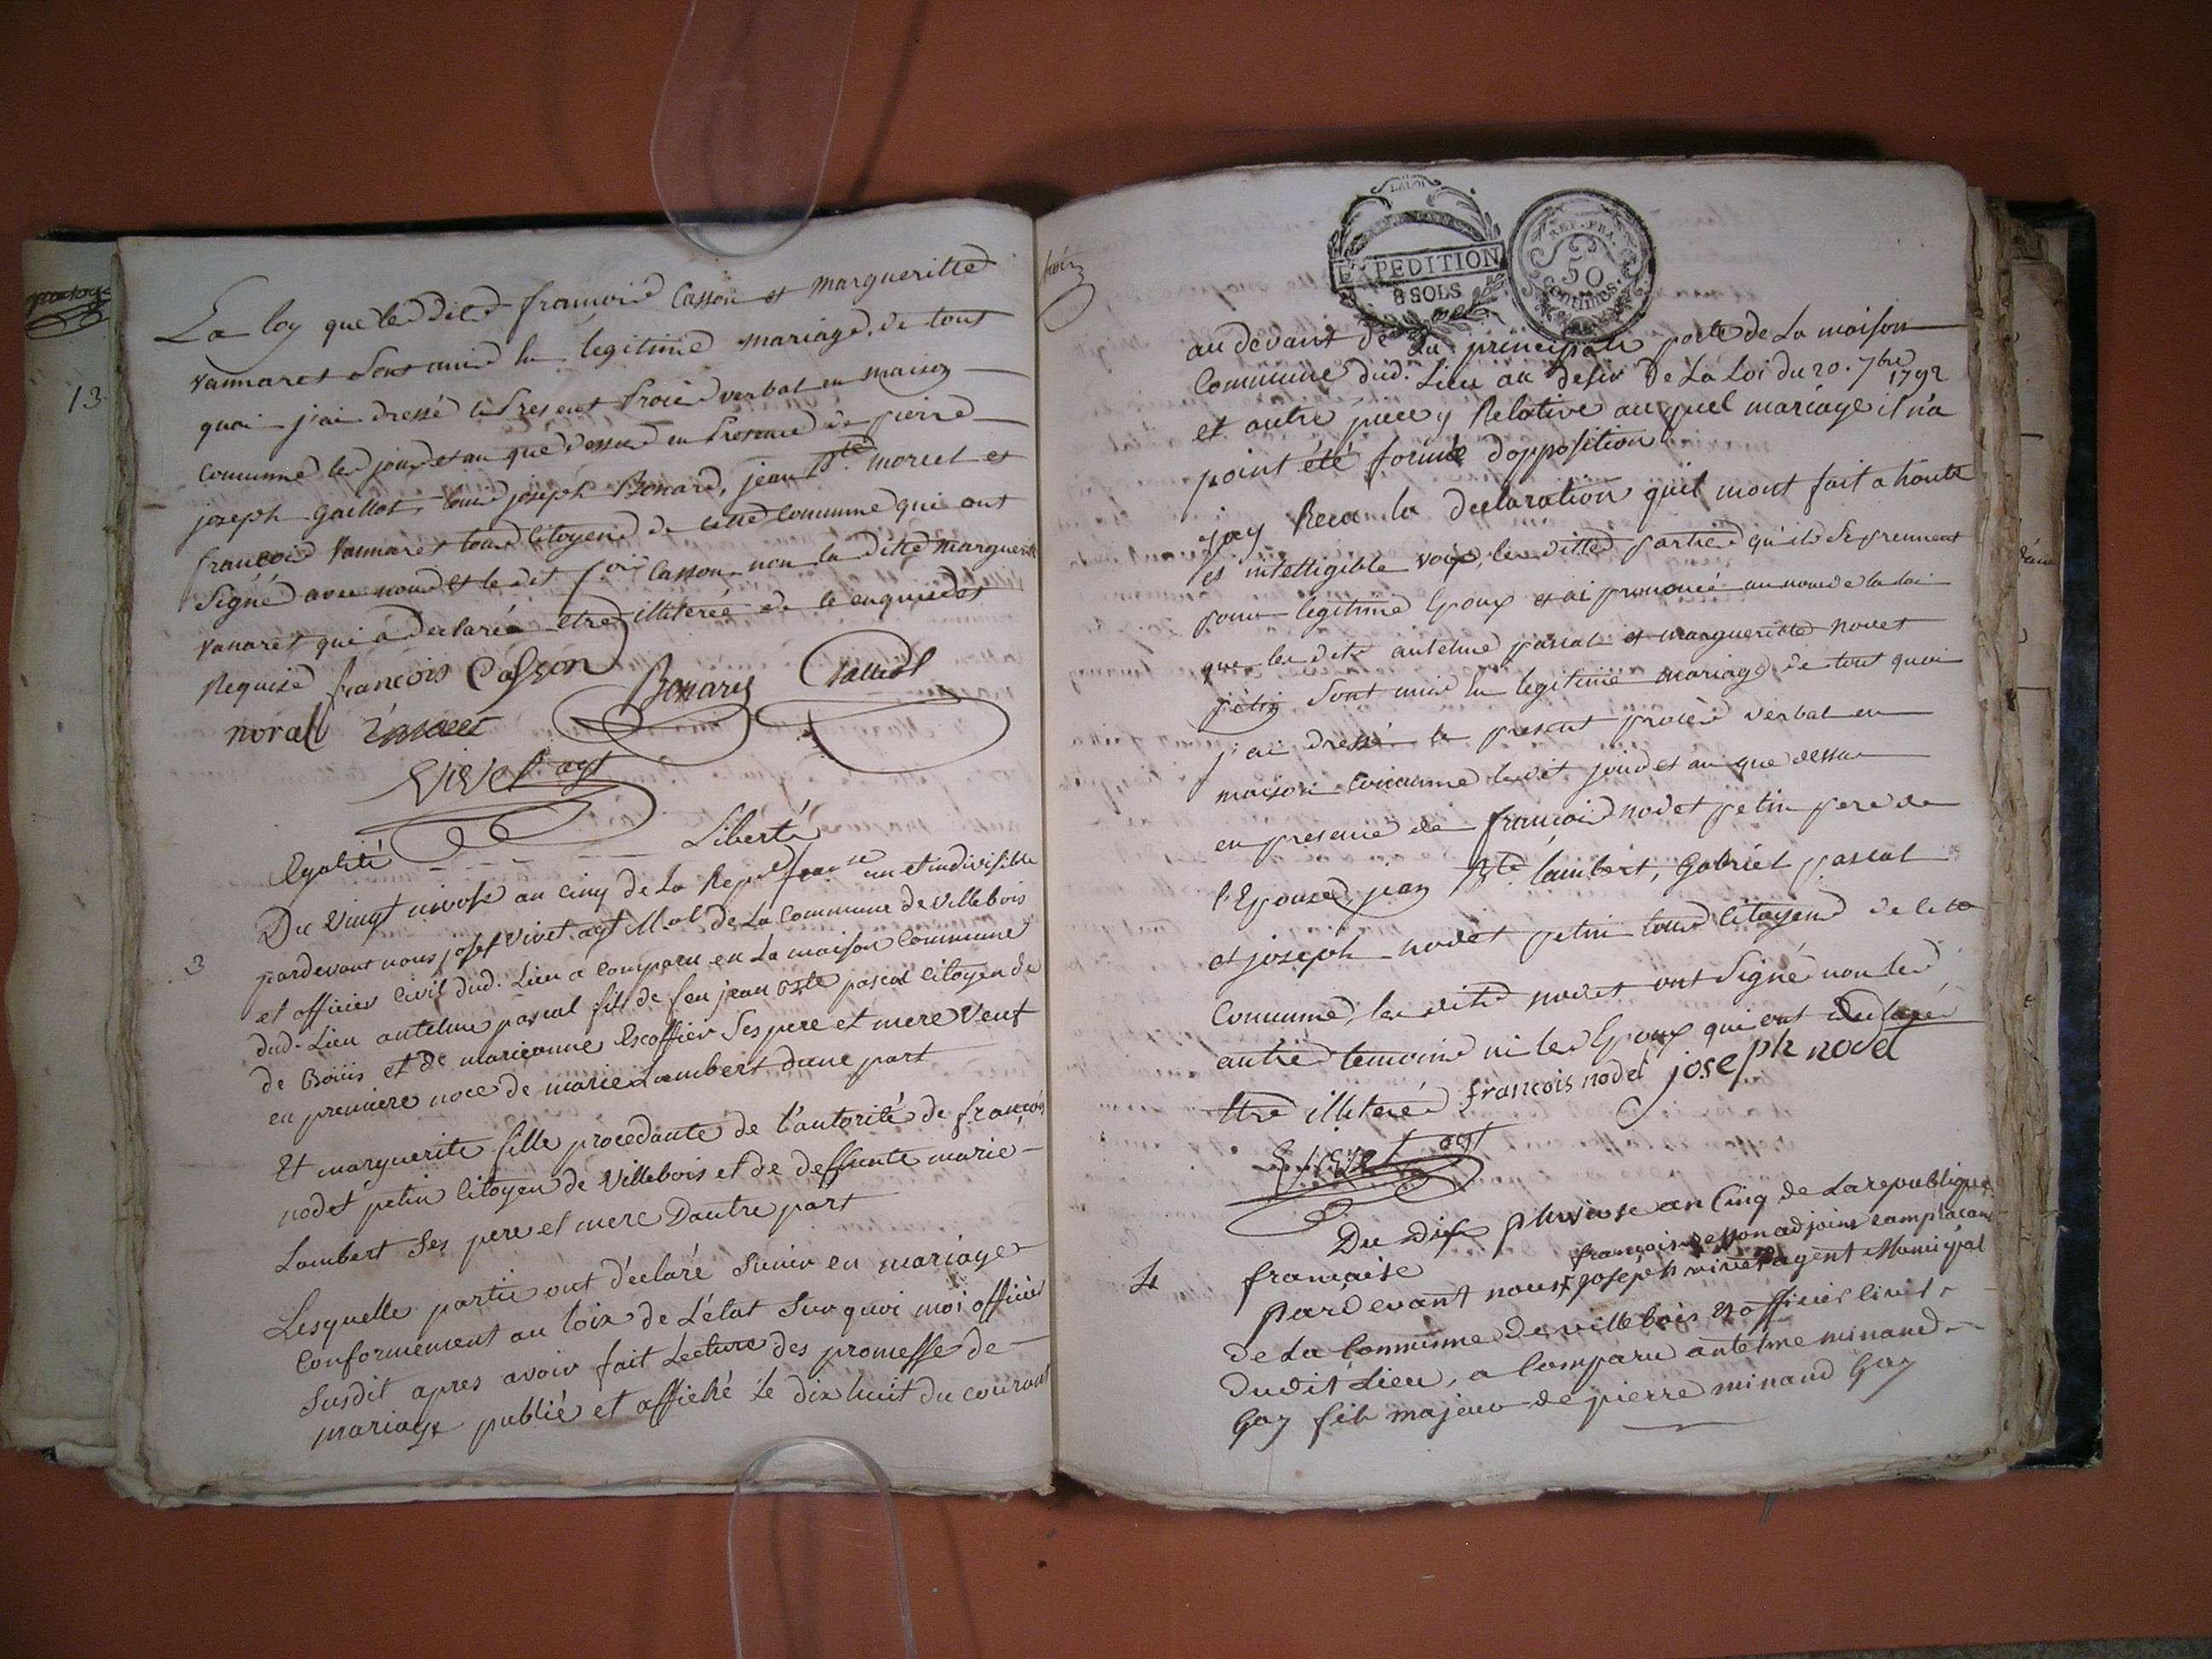 La loy que les dits francois Casson et margueritte
vannaret sont unis En legitime mariage. de tout
quoi j'ai dressé le present procès verbal en maison
commune les jour et an que dessus en presence de pierre
joseph gaillot, louis joseph Bonard, jean Bte. morel et
françois vannaret tous citoyens de cette commune qui ont
signé avec nous et le dit fois Casson non la dite marguerite
vanaret qui a declaré etre illiterée de ce enquise et
Requise
francois Casson
Bonard
Galliot
noral
vivet agt
Egalité - - - - - Liberté
13
3
Du vingt nivose an cinq de La Repue francse une et indivisible
pardevant nous josef vivet agt M.al de La Commune de Villebois
et officier Civil dud. Lieu a comparu en La maison Commune
dud. Lieu antelme pascal fils de feu jean Bste pascal citoyen de
de Bouis et de marieanne Escoffier ses pere et mere veuf
en premiere noce de marie Lambert dune part
Et marguerite fille procedante de l'autorité de francois
nodet petin citoyen de Villebois et de deffunte marie
Lambert ses pere et mere Dautre part
Lesquelle partie ont déclaré sunir en mariage
Conformement au loix de L'état sur quoi moi officier
susdit apres avoir fait Lecture des promesse de
mariage publié et affiché Le dix huit du courant
LA LOI
EXPEDITION
8 SOLS
REP. FRA.
50
centimes.
au devant de La principale porte de La maison
Commune dud. Lieu au desir de La Loi du 20. 7bre
1792
et autre y Relative au quel mariage il n'a
point été formé d'opposition
jay Recu la declaration quil mont fait a haute
et intelligible voix, les dittes parties qu'ils se prennent
pour legitime Epoux et ai prononcé au nom de la loi
que les dits antelme pascal et margueritte nodet
petin sont unis En legitime mariage, de tout quoi
j'ai dressé le present procès verbal en
maison commune les dit jour et an que dessus
en presence de francois nodet petin pere de
l'Epouse, jean Bte. lambert, Gabriel pascal
et joseph nodet petin tous citoyens de cette
commune, les dits nodet ont signé non les
autres temoins ni les Epoux qui ont declaré
Etre illiteré
francois nodet joseph nodet
vivet agt
Du dix pluviose an Cinq de La republique
4
francaise
francois Besson adjoint ramplacant
pardevant nous joseph vivet agent Municipal
de La Commune de villebois et officier civil
dudit Lieu, a comparu antelme minand
Gay fils majeur de pierre minand Gay